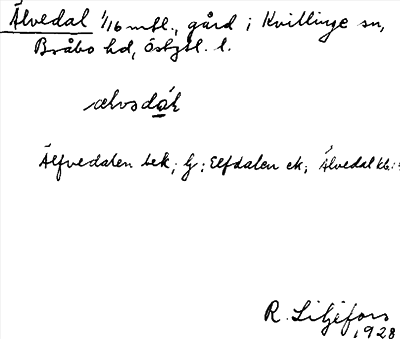 Älvedal 1/16 mtl., gård i Kvillinge sn,
Bråbo hd, Östgtl. l.
Älfvedalen tek; G: Elfdalen ek; Älvedal kb:
R. Liljefors
1928